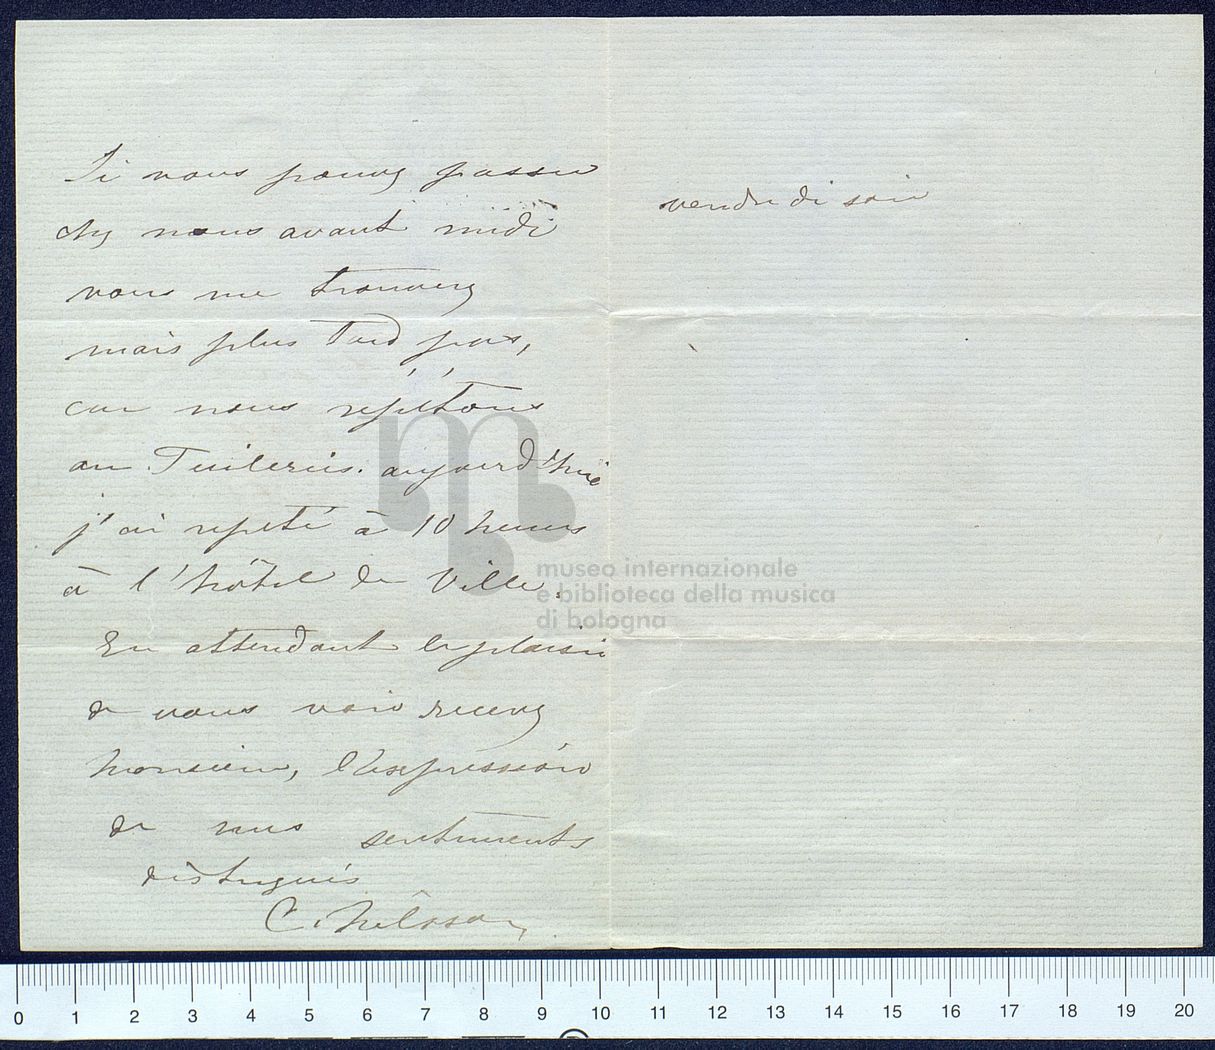 Si vous pouvez passer
chez nous avant midi
vous me trouverez
mais plus tard pas,
car nous répétons
au Tuileries. aujourd'hui
j'ai repeté à 10 heures
à l'hôtel de Ville.
En attendant le plaisir
de vous voir recevez
monsieur, l'expression
de mes sentiments
distingués
C. Nilsson
vendredi soir
museo internazionale
e biblioteca della musica
di bologna
0 1 2 3 4 5 6 7 8 9 10 11 12 13 14 15 16 17 18 19 20